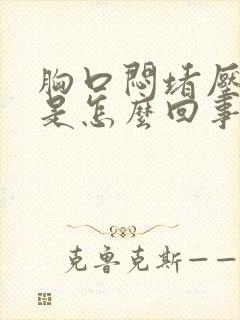 胸口悶堵壓
是怎麼回事
克魯克斯——